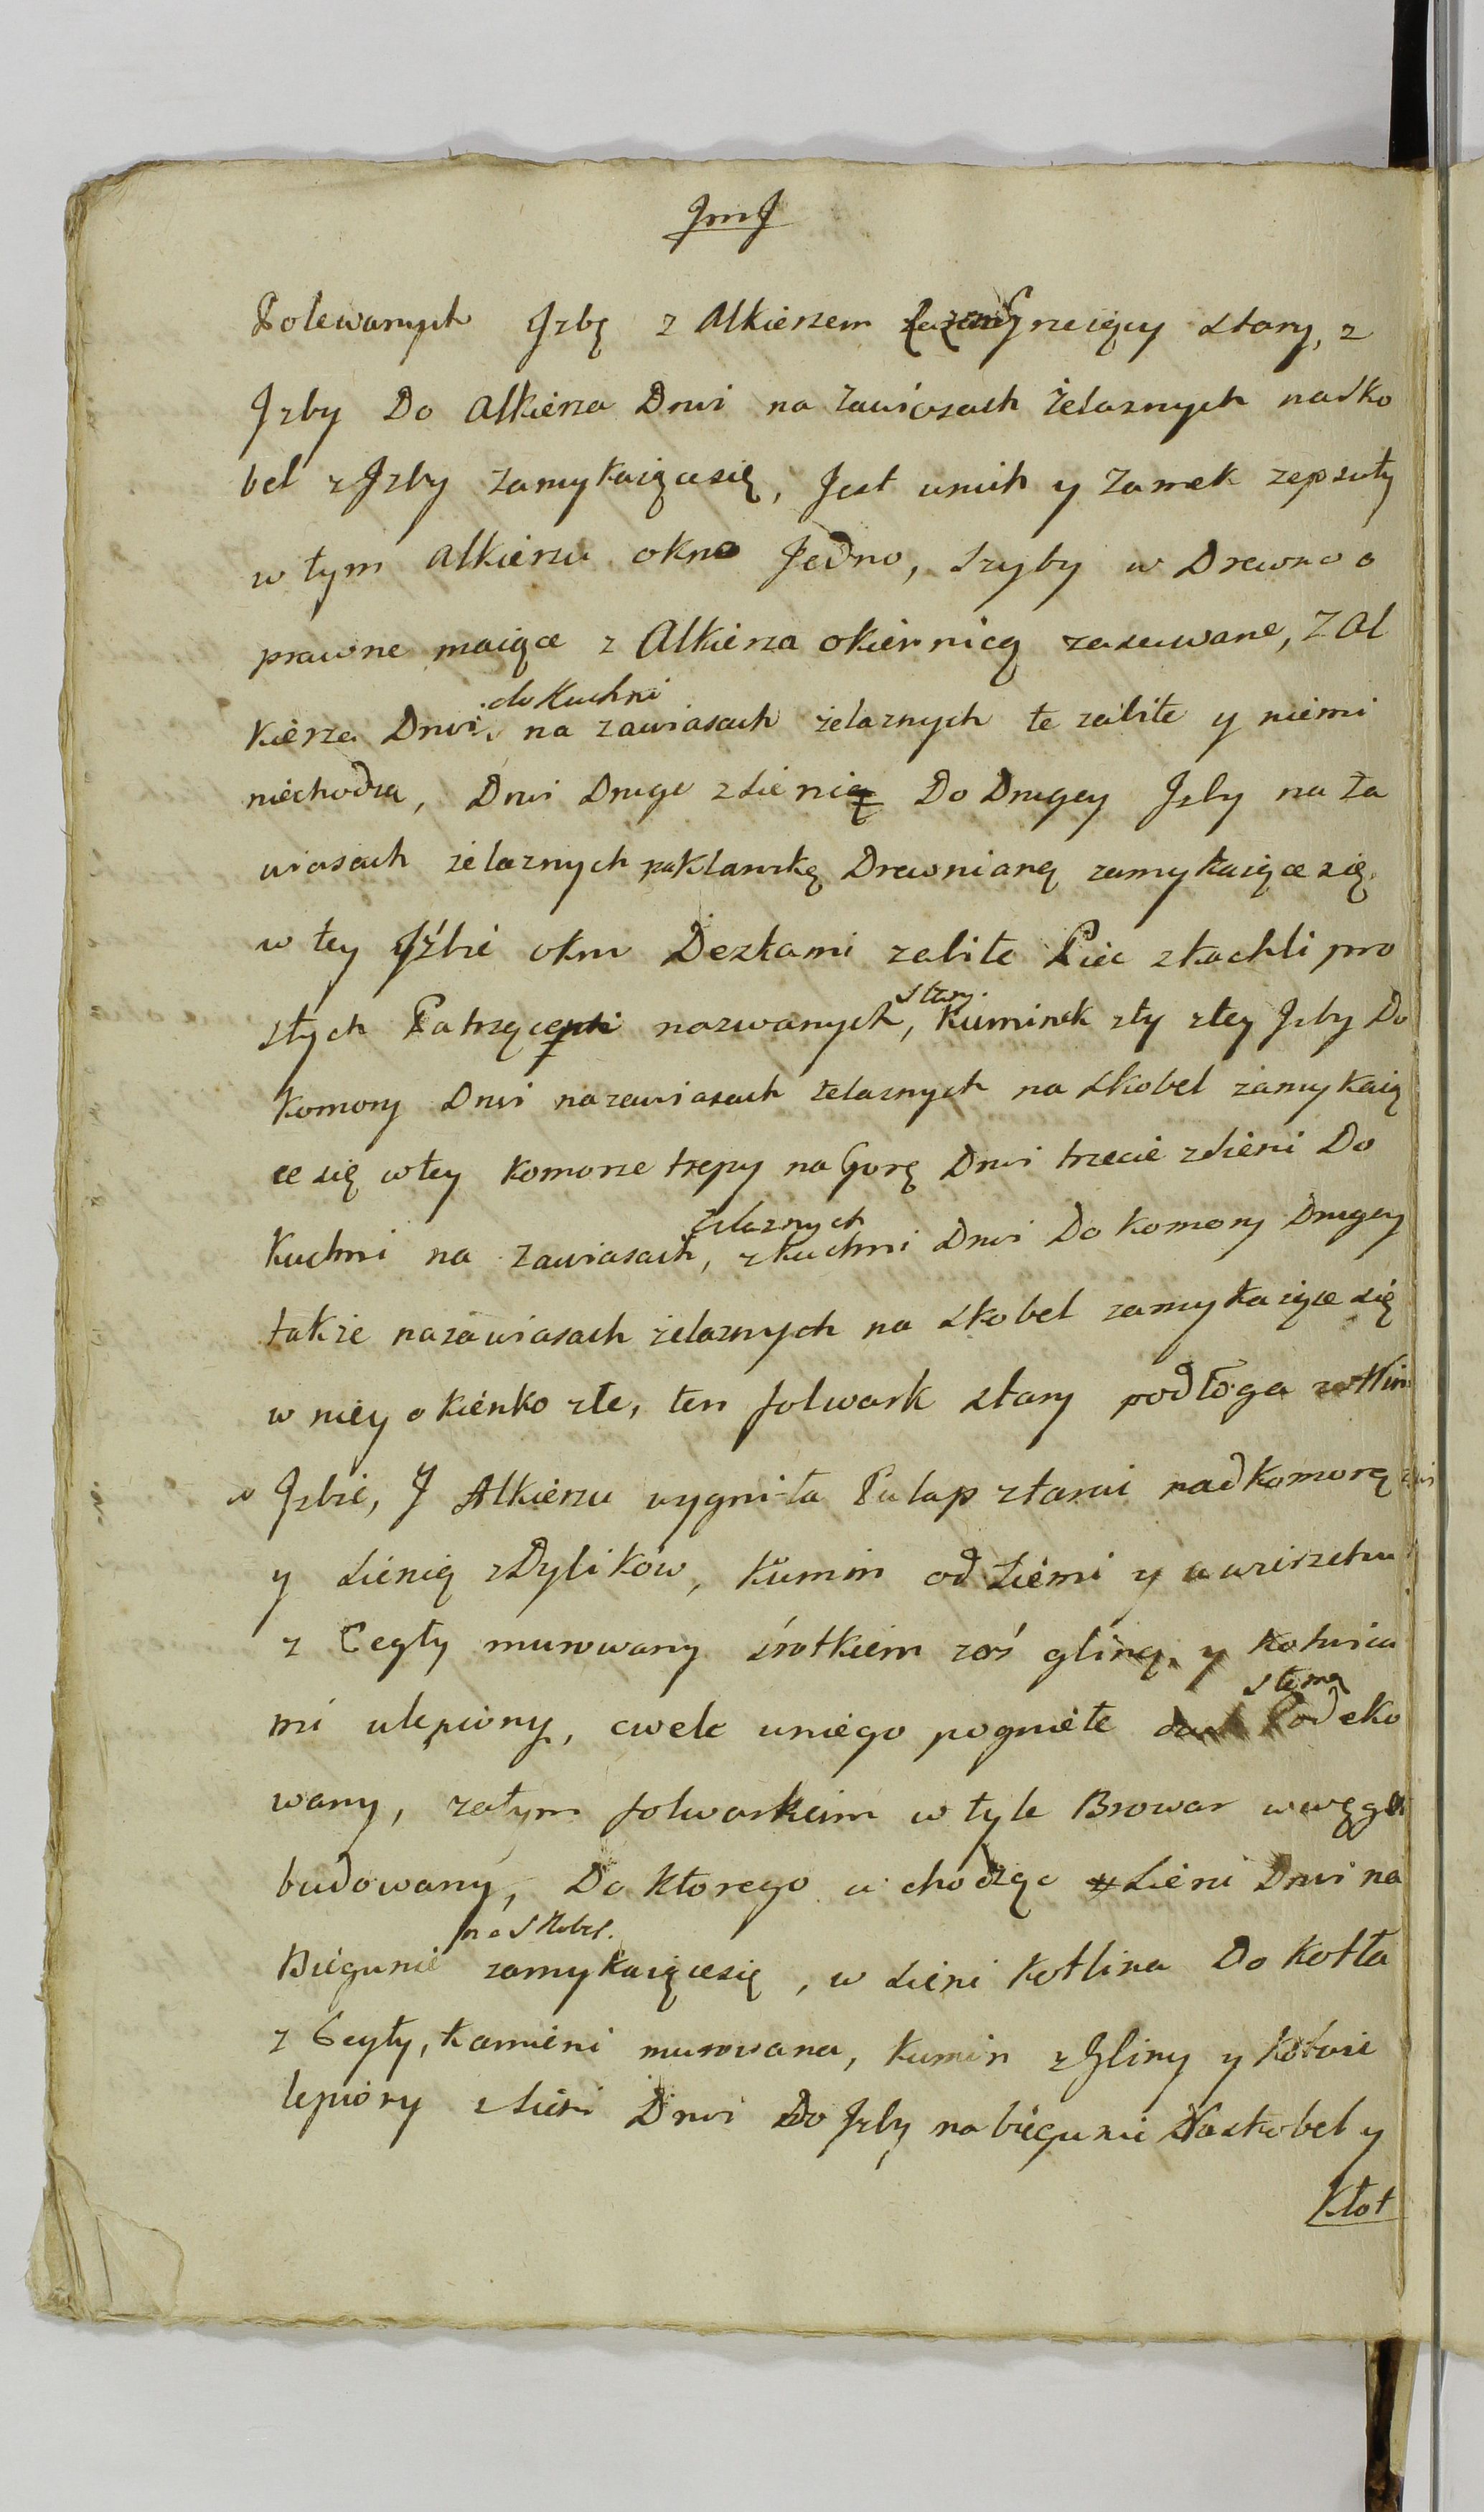 JmJ
Polewanych Jzbę z Alkierzem grzeiący stary, z
Jzby Do Alkierza Drwi na zawiasach żelaznych nasko
bel z Jzby zamykaiącesię, Jest unich y zamek zepsuty
w tym Alkierzu okno Jedno, szyby w Drewno o
prawne maiące z Alkierza okiennicą zasuwane, Z Al
do Kuchni
kierza Drwi, na zawiasach żelaznych te zabite y niemi
niechodza, Drwi Drugie z sieni Do Drugey Jzby na za
wiasach żelaznych na klamkę Drewnianą zamykaiące się.
w tey Jźbie okno Deszkami zabite Piec z kachli pro
stary.
stych Patrzącemi nazwanych, Kuminek zły z tey Jzby Do
komory Drwi na zawiasach żelaznych na skobel zamykaią
ce się w tey komorze trepy na Gorę Drwi trzecie z sieni Do
żelaznych
Kuchni na zawiasach, z kuchni Drwi Do komory Drugey
także na zawiasach żelaznych na skobel zamykaiące się
w niey okienko złe, ten folwark stary podłoga
w Jzbie, J Alkierzu wygniła Pułap z tarcic nad komorą
y sienią z Dylików, Kumin od ziemi y u wierzchu
z Cegły murowany śrotkiem zaś gliną, y kołwica
mi ulepiony, cwele uniego pogniełe
słomą
Podeko
wany, za tym folwarkiem w tyle Browar w węgeł
budowany, Do ktorego wchodząc Sieni Drwi na
na Skobel.
Biegunie zamykaiącesię, w sieni kotlina Do kotła
z Cegły, kamieni murowana, kumin z Gliny y kołwic
lepiony z sieni Drwi Do Jzby na biegunie Naskobel y
Kłot